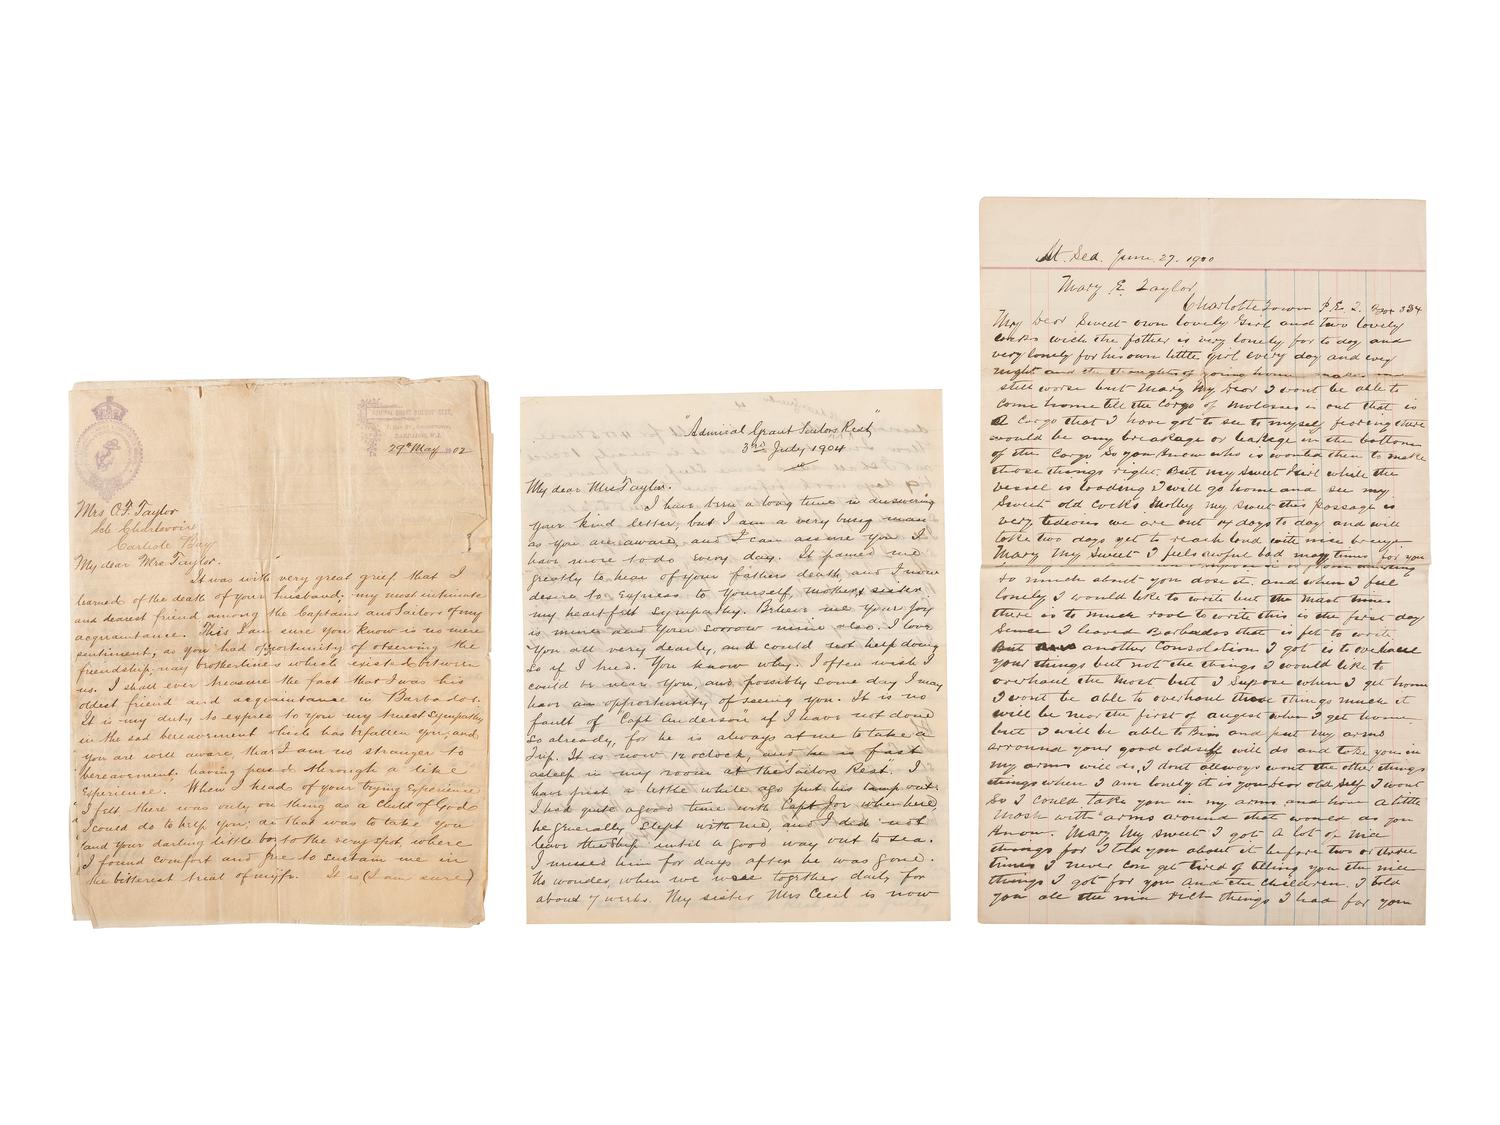 29th May 02
Mrs O. F. Taylor
Sch Charlevoix
Carlisle Bay
My dear Mrs Taylor.
It was with very great grief that I
learned of the death of your husband; my most intimate
and dearest friend among the Captains and Sailors of my
acquaintance. This I am sure you know is no mere
sentiment, as you had opportunity of observing the
friendship, nay brotherliness which existed between
us. I shall ever treasure the fact that I was his
oldest friend and acquaintance in Barbados.
It is my duty to express to you my truest sympathy
in the sad bereavement which has befallen you, and
you are well aware that I am no stranger to
bereavement, having passed through a like
experience. When I heard of your trying experience
I felt there was only on thing as a Child of God
I could do to help you; as that was to take you
and your darling little boy to the very spot where
I found comfort and to sustain me in
the bitterest trial of my life. It is (I am sure)
"Admiral Grant Sailors Rest"
3rd July 1904
My dear Mrs Taylor.
I have been a long time in answering
your kind letter, but I am a very busy man
as you are aware, and I can assure you I
have more to do every day. It pained me
greatly to hear of your father death, and I now
desire to express to yourself, mother & sister
my heartfelt sympathy. Believe me your joy
is mine and your sorrow mine also. I love
you all very dearly, and could not help doing
so if I tried. You know why. I often wish I
could be near you, and possibly some day I may
have an opportunity of seeing you. It is no
fault of Capt Anderson if I have not done
so already, for he is always at me to take a
trip. It is now 12 oclock, and he is fast
asleep in my room at the "Sailors Rest". I
have just a little while ago put his lamp out.
I had quite a good time with Capt for when here,
he generally slept with me, and I did not
leave the ship until a good way out to sea.
I missed him for days after he was gone.
No wonder, when we were together daily for
about 7 weeks. My sister Mrs Cecil is now
At. Sea. June. 27. 1900
Mary E Taylor
Charlotte Town P. E. I. Box 334
My Dear Sweet own lovely Girl and two lovely
cocks wich the father is very lonely for to day and
very lonely for his own little girl every day and evry
night and the thoughts of going home makes me
still worse but Mary My Dear I wont be able to
come home till the Cargo of Molasses is out that is
A Cargo that I have got to see to myself fearing there
would be any breakage or leakage in the bottom
of the Cargo So you know who is wanted then to make
those things right. But my Sweet Girl while the
vessel is loading I will go home and see my
Sweet old Cocks Molley my Sweet this passage is
very tedious we are out 14 days to day and will
take two days yet to reach land with nice breeze
Mary My Sweet I feel awful bad many times for you
so much about you dose it. and when I feel
lonely I would like to write but the most times
there is to much rool to write this is the first day
Since I leaved Barbados that is fit to write
But another Consolation I got is to overhaul
your things but not the things I would like to
overhaul the most but I Supose when I get home
I wont be able to overhaul those things much it
will be near the first of august when I get home
but I will be able to and put my arms
arround your good old self will do and take you in
my arms will do, I dont allways want the other things
things when I am lonely it is your Dear old Self I want
So I could take you in my arms and have a little
with arms around that would do you
know. Mary My Sweet I got a lot of nice
things for I told you about it before two or three
times I never can get tired of telling you the nice
things I got for you and the Children. I told
you all the things I had for you